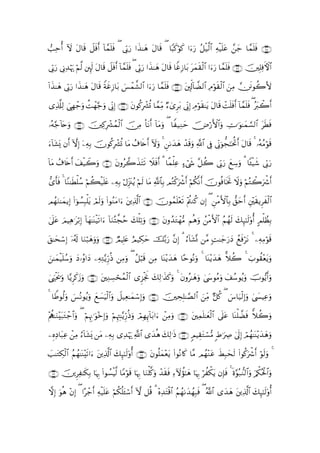 ۝ فَلَمَّا جَنَّ عَلَيْهِ ٱلَّيْلُ رَءَا كَوْكَبًا ۖ قَالَ هَـٰذَا رَبِّى ۖ فَلَمَّآ أَفَلَ قَالَ لَآ أُحِبُّ
ٱلْـَٔافِلِينَ ۝ فَلَمَّا رَءَا ٱلْقَمَرَ بَازِغًا قَالَ هَـٰذَا رَبِّى ۖ فَلَمَّآ أَفَلَ قَالَ لَئِن لَّمْ يَهْدِنِى رَبِّى
لَأَكُونَنَّ مِنَ ٱلْقَوْمِ ٱلضَّآلِّينَ ۝ فَلَمَّا رَءَا ٱلشَّمْسَ بَازِغَةً قَالَ هَـٰذَا رَبِّى هَـٰذَآ
أَكْبَرُ ۖ فَلَمَّآ أَفَلَتْ قَالَ يَـٰقَوْمِ إِنِّى بَرِىٓءٌ مِّمَّا تُشْرِكُونَ ۝ إِنِّى وَجَّهْتُ وَجْهِىَ لِلَّذِى
فَطَرَ ٱلسَّمَـٰوَٰتِ وَٱلْأَرْضَ حَنِيفًا ۖ وَمَآ أَنَا۠ مِنَ ٱلْمُشْرِكِينَ ۝ وَحَآجَّهُۥ
قَوْمُهُۥ ۚ قَالَ أَتُحَـٰٓجُّوٓنِّى فِى ٱللَّهِ وَقَدْ هَدَىٰنِ ۚ وَلَآ أَخَافُ مَا تُشْرِكُونَ بِهِۦٓ إِلَّآ أَن يَشَآءَ
رَبِّى شَيْـًٔا ۗ وَسِعَ رَبِّى كُلَّ شَىْءٍ عِلْمًا ۗ أَفَلَا تَتَذَكَّرُونَ ۝ وَكَيْفَ أَخَافُ مَآ
أَشْرَكْتُمْ وَلَا تَخَافُونَ أَنَّكُمْ أَشْرَكْتُم بِٱللَّهِ مَا لَمْ يُنَزِّلْ بِهِۦ عَلَيْكُمْ سُلْطَـٰنًا ۚ فَأَىُّ
ٱلْفَرِيقَيْنِ أَحَقُّ بِٱلْأَمْنِ ۖ إِن كُنتُمْ تَعْلَمُونَ ۝ ٱلَّذِينَ ءَامَنُوا۟ وَلَمْ يَلْبِسُوٓا۟ إِيمَـٰنَهُم
بِظُلْمٍ أُو۟لَـٰٓئِكَ لَهُمُ ٱلْأَمْنُ وَهُم مُّهْتَدُونَ ۝ وَتِلْكَ حُجَّتُنَآ ءَاتَيْنَـٰهَآ إِبْرَٰهِيمَ عَلَىٰ
قَوْمِهِۦ ۚ نَرْفَعُ دَرَجَـٰتٍ مَّن نَّشَآءُ ۗ إِنَّ رَبَّكَ حَكِيمٌ عَلِيمٌ ۝ وَوَهَبْنَا لَهُۥٓ إِسْحَـٰقَ
وَيَعْقُوبَ ۚ كُلًّا هَدَيْنَا ۚ وَنُوحًا هَدَيْنَا مِن قَبْلُ ۖ وَمِن ذُرِّيَّتِهِۦ دَاوُۥدَ وَسُلَيْمَـٰنَ
وَأَيُّوبَ وَيُوسُفَ وَمُوسَىٰ وَهَـٰرُونَ ۚ وَكَذَٰلِكَ نَجْزِى ٱلْمُحْسِنِينَ ۝ وَزَكَرِيَّا وَيَحْيَىٰ
وَعِيسَىٰ وَإِلْيَاسَ ۖ كُلٌّ مِّنَ ٱلصَّـٰلِحِينَ ۝ وَإِسْمَـٰعِيلَ وَٱلْيَسَعَ وَيُونُسَ وَلُوطًا ۚ
وَكُلًّا فَضَّلْنَا عَلَى ٱلْعَـٰلَمِينَ ۝ وَمِنْ ءَابَآئِهِمْ وَذُرِّيَّـٰتِهِمْ وَإِخْوَٰنِهِمْ ۖ وَٱجْتَبَيْنَـٰهُمْ
وَهَدَيْنَـٰهُمْ إِلَىٰ صِرَٰطٍ مُّسْتَقِيمٍ ۝ ذَٰلِكَ هُدَى ٱللَّهِ يَهْدِى بِهِۦ مَن يَشَآءُ مِنْ عِبَادِهِۦ ۚ
وَلَوْ أَشْرَكُوا۟ لَحَبِطَ عَنْهُم مَّا كَانُوا۟ يَعْمَلُونَ ۝ أُو۟لَـٰٓئِكَ ٱلَّذِينَ ءَاتَيْنَـٰهُمُ ٱلْكِتَـٰبَ
وَٱلْحُكْمَ وَٱلنُّبُوَّةَ ۚ فَإِن يَكْفُرْ بِهَا هَـٰٓؤُلَآءِ فَقَدْ وَكَّلْنَا بِهَا قَوْمًا لَّيْسُوا۟ بِهَا بِكَـٰفِرِينَ ۝
أُو۟لَـٰٓئِكَ ٱلَّذِينَ هَدَى ٱللَّهُ ۖ فَبِهُدَىٰهُمُ ٱقْتَدِهْ ۗ قُل لَّآ أَسْـَٔلُكُمْ عَلَيْهِ أَجْرًا ۖ إِنْ هُوَ إِلَّا